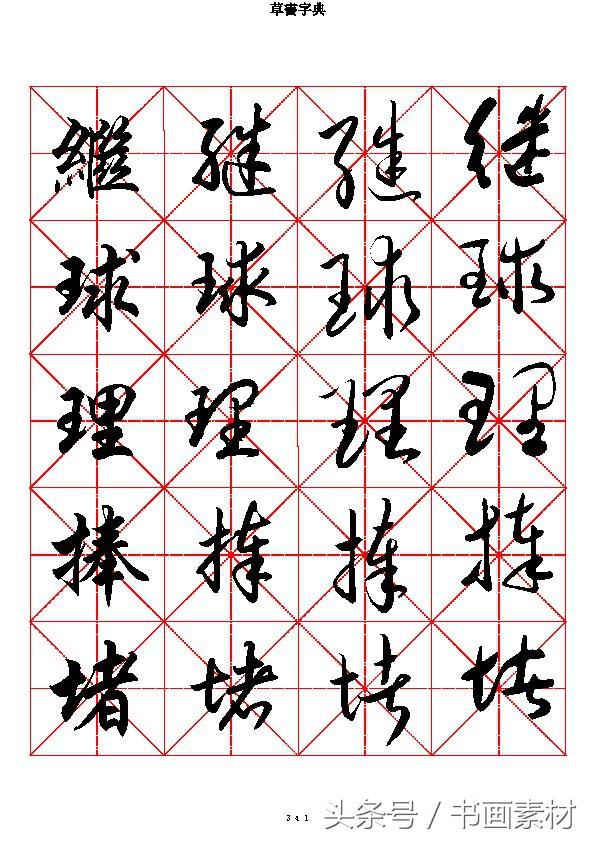 草書字典
繼 继 继 继
球 球 球 球
理 理 理 理
捧 捧 捧 捧
堵 堵 堵 堵
341
头条号 / 书画素材